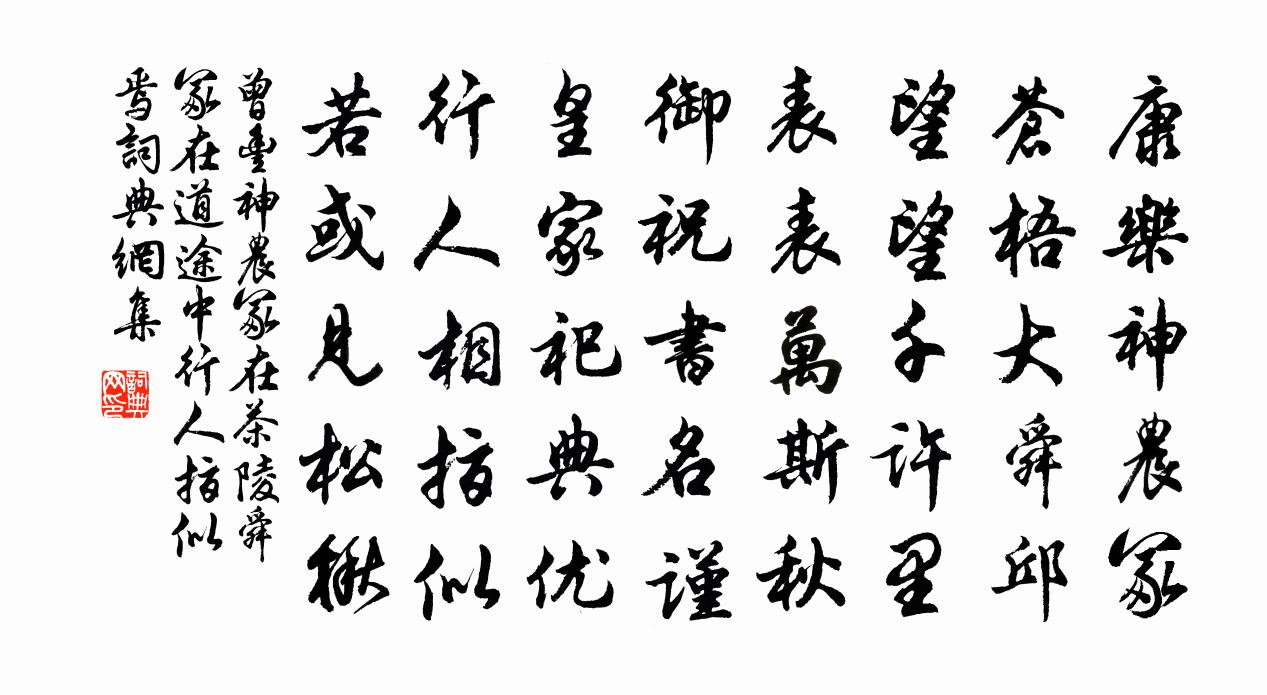 康樂神農冢
蒼梧大舜邱
望望千許里
表表萬斯秋
御祝書名謹
皇家祀典优
行人相指似
若或見松楸
曾豐神農冢在茶陵舜
冢在道途中行人指似
焉詞典網集
詞典网印